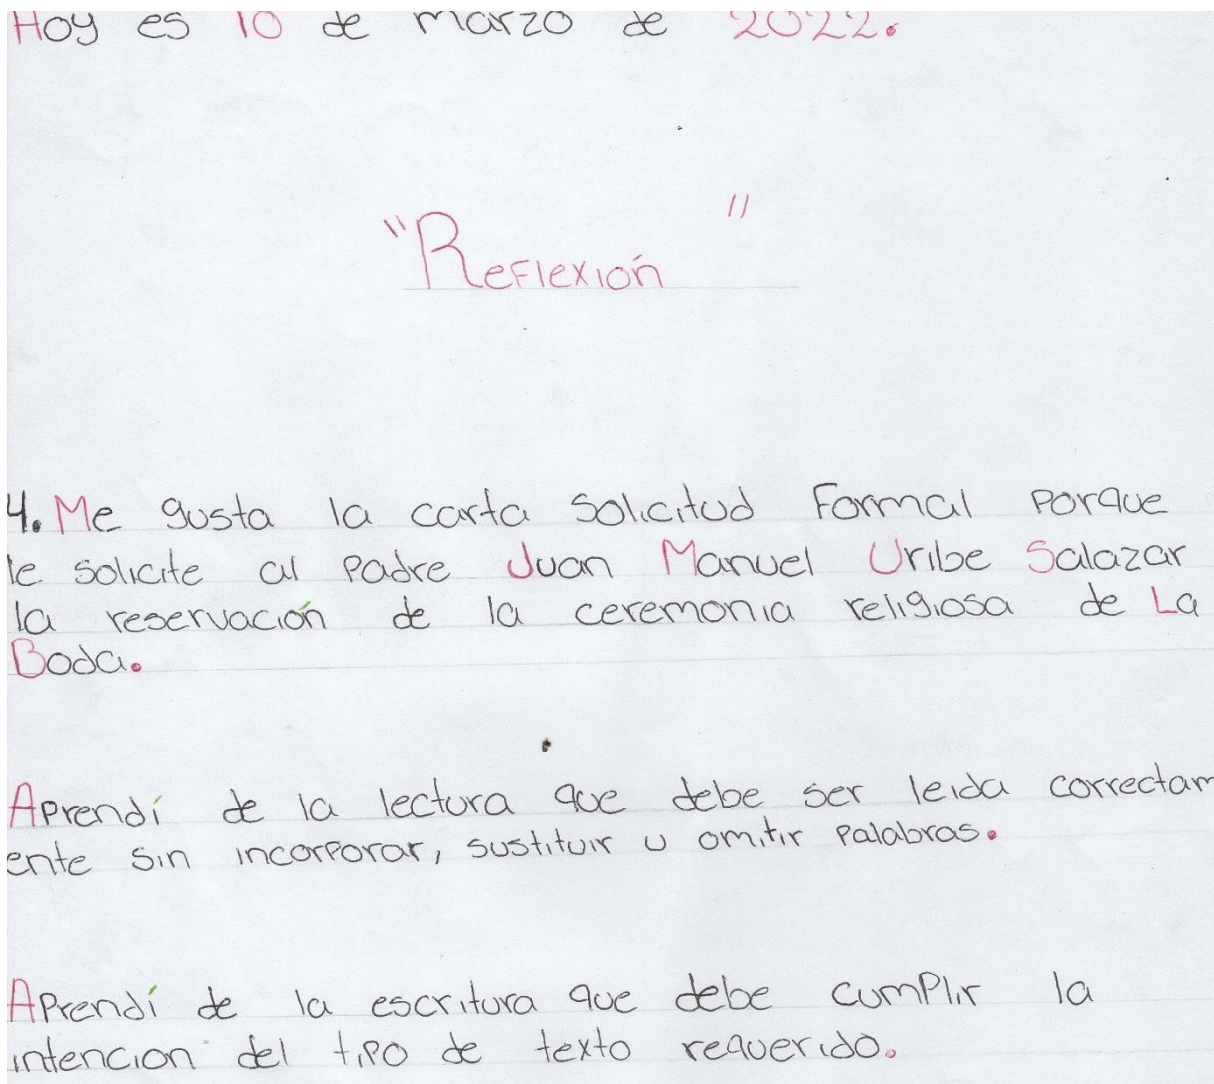 Hoy es 10 de marzo de 2022.
"Reflexión"
4. Me gusta la carta solicitud Formal porque
le solicite al Padre Juan Manuel Uribe Salazar
la reservación de la ceremonia religiosa de La
Boda.
Aprendí de la lectura que debe ser leida correctam
ente sin incorporar, sustituir u omitir palabras.
Aprendí de la escritura que debe cumplir la
intencion del tipo de texto requerido.